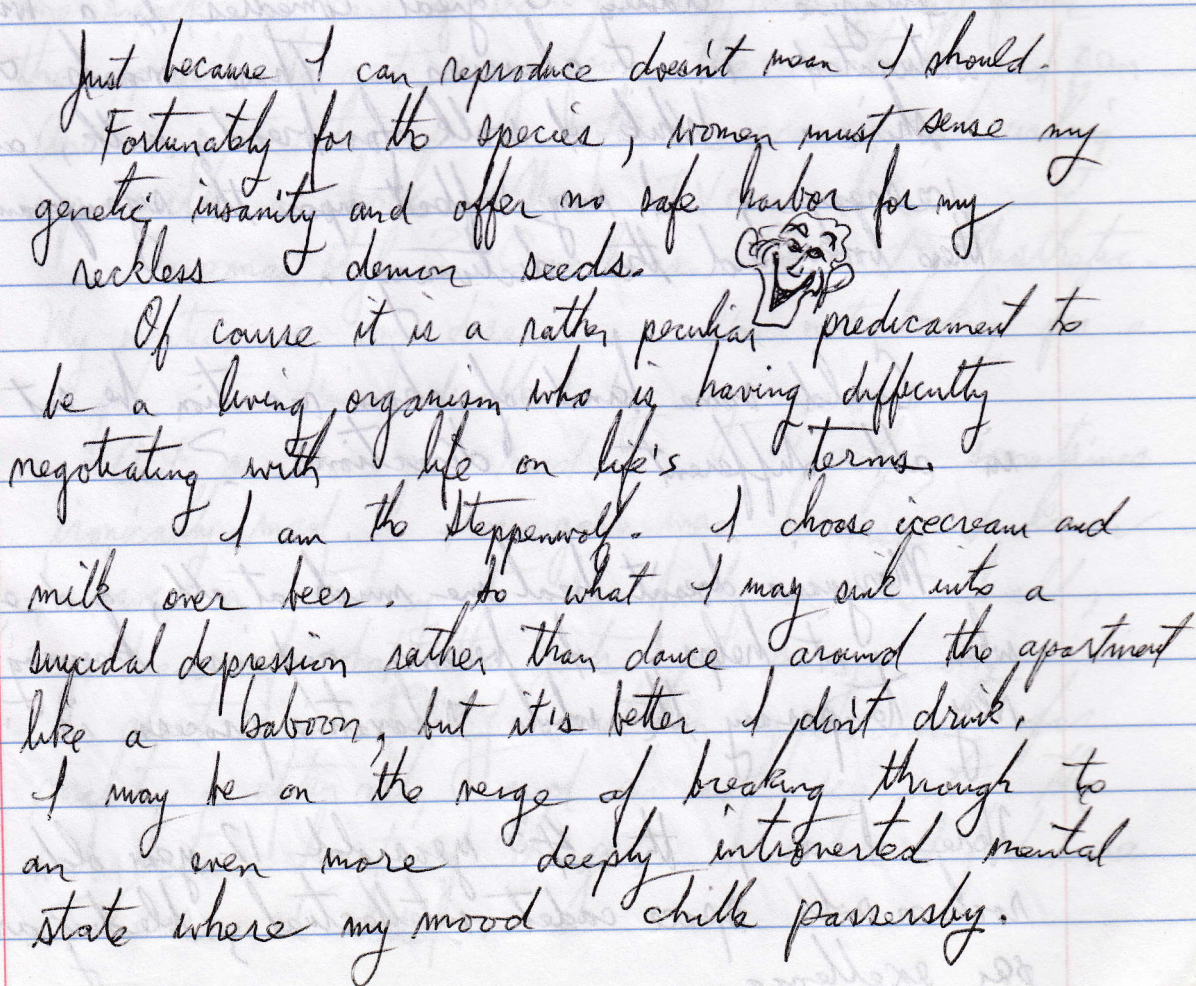 Just because I can reproduce doesn't mean I should.
Fortunately for the species, women must sense my
genetic insanity and offer no safe harbor for my
reckless demon seeds.
Of course it is a rather peculiar predicament to
be a living organism who is having difficulty
negotiating with life on life's terms.
I am the Steppenwolf. I choose icecream and
milk over beer. So what I may sink into a
suicidal depression rather than dance around the apartment
like a baboon, but it's better I don't drink.
I may be on the verge of breaking through to
an even more deeply introverted mental
state where my mood chills passersby.